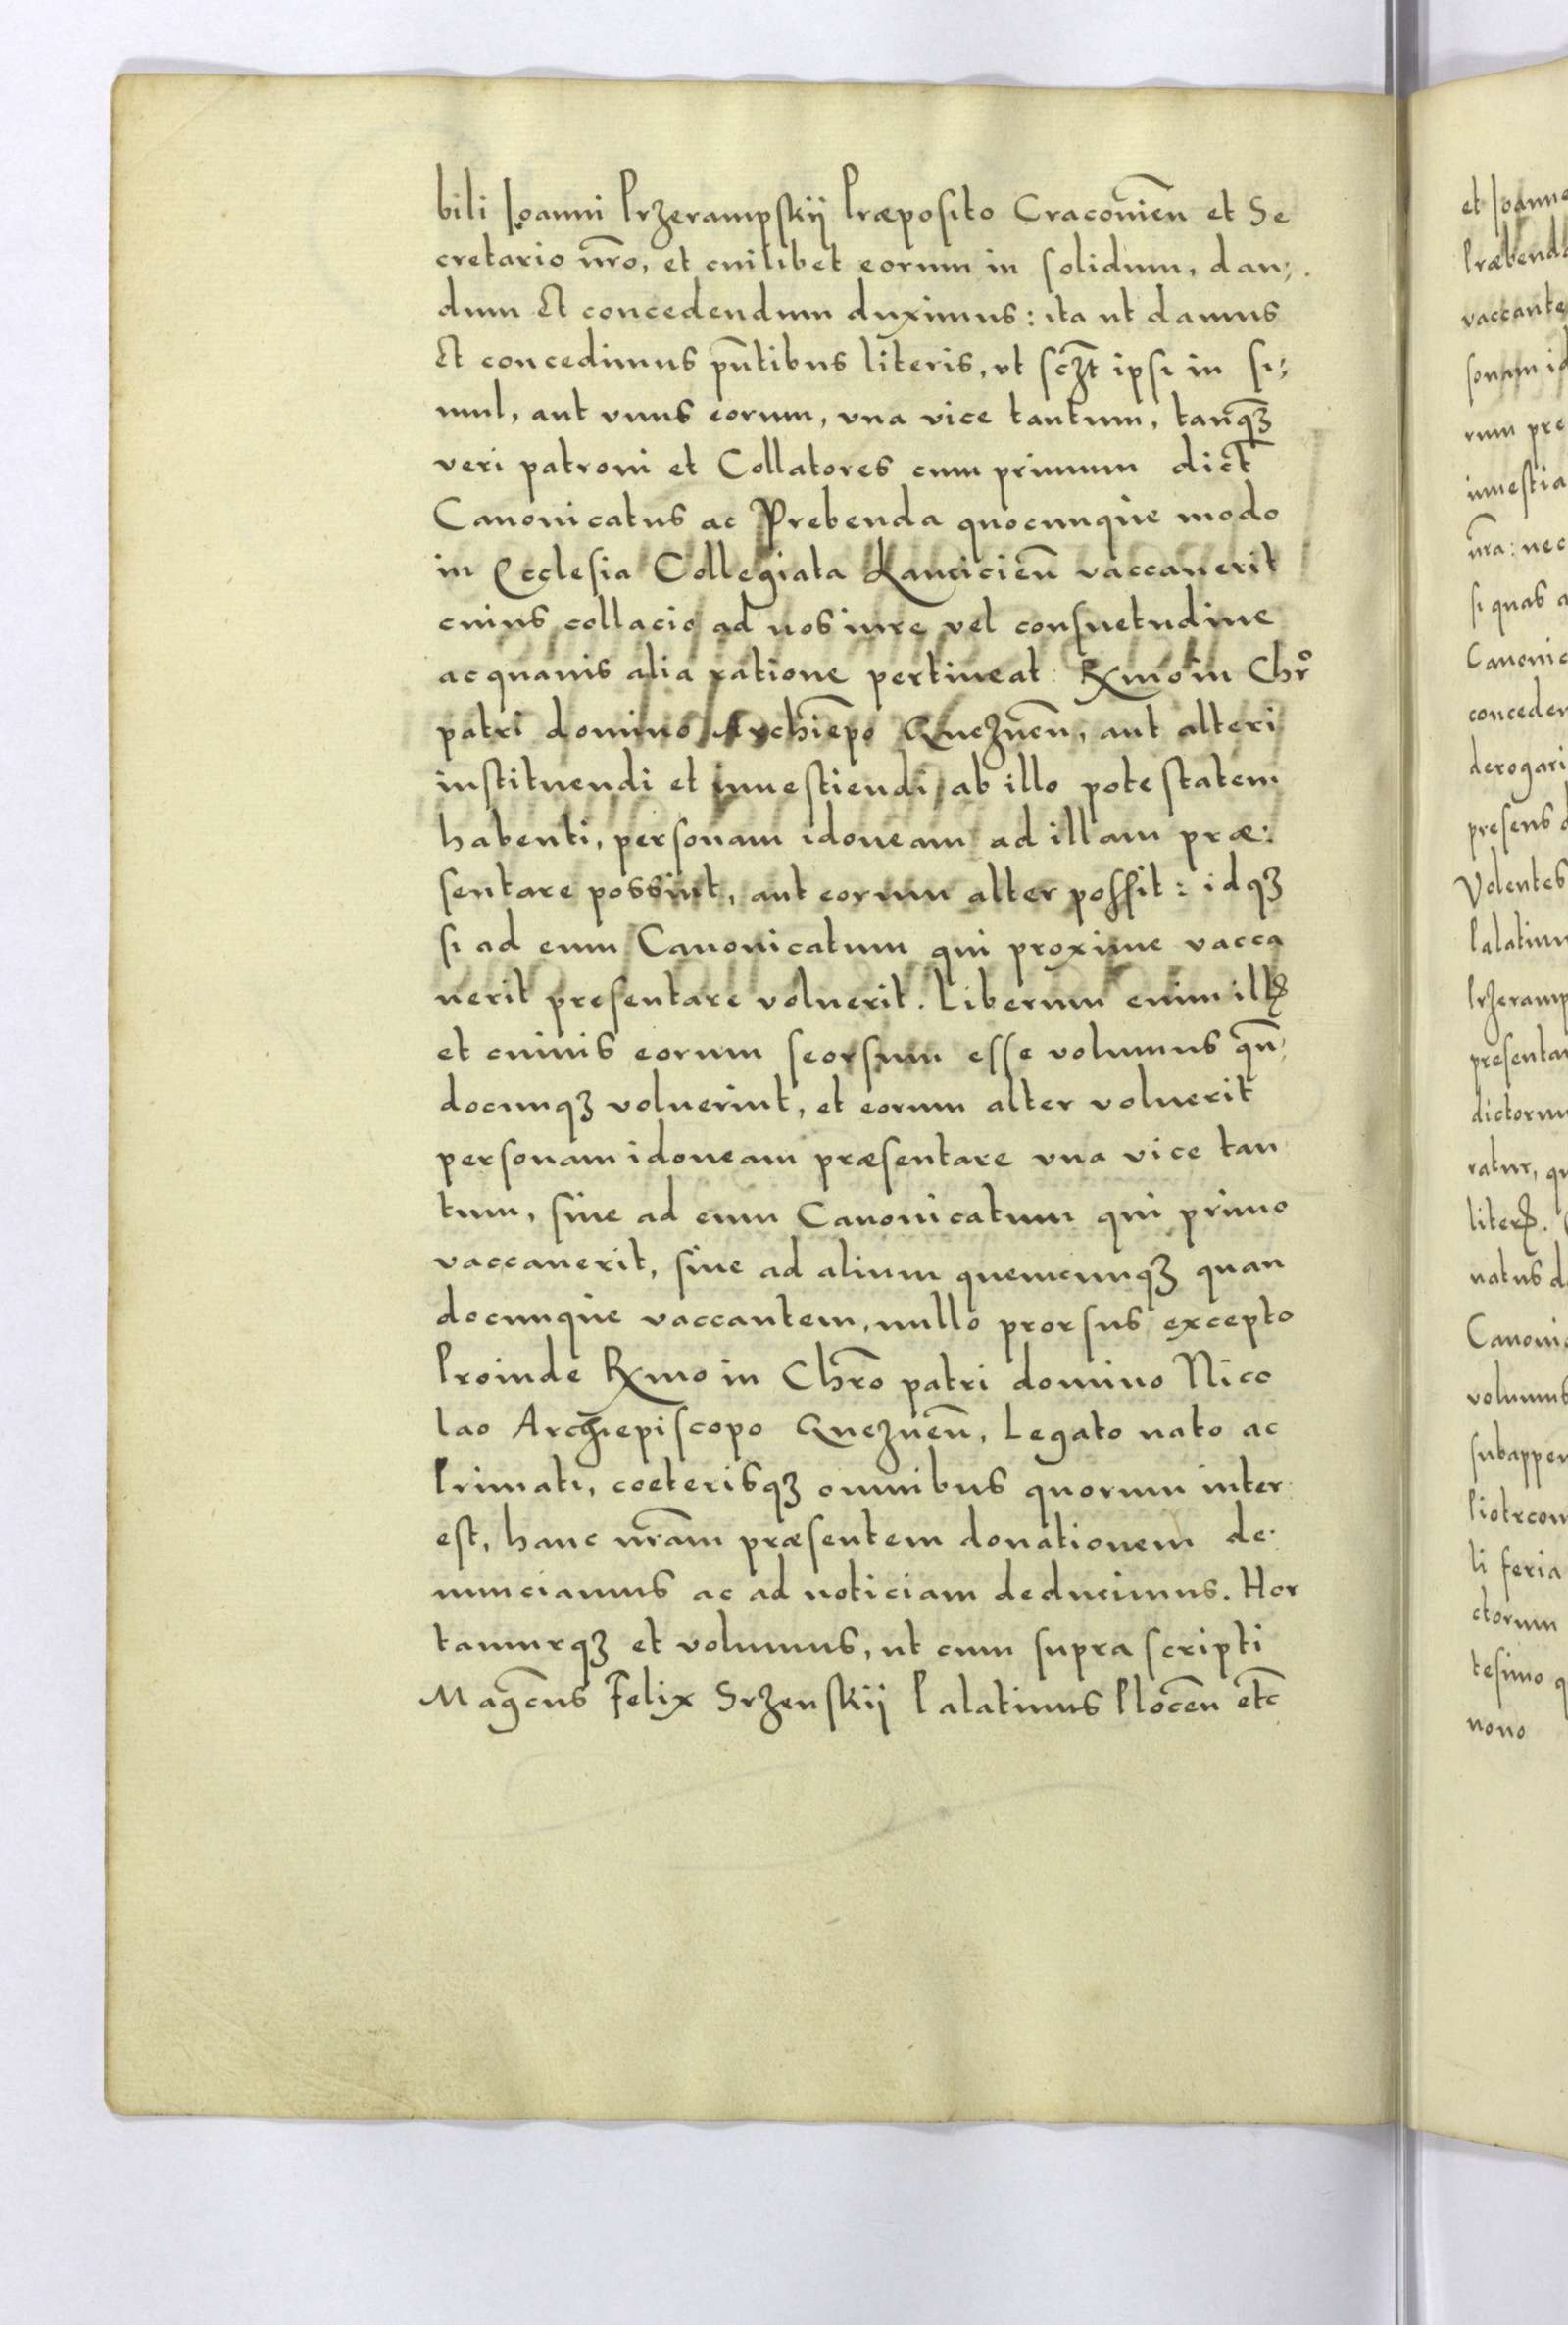 bili Joanni Przerampskij Præposito Cracouien̄ et Se
cretario nr̄o, et cuilibet eorum in solidum, dan;
dum et concedendum duximus: ita ut damus
et concedimus pn̄tibus literis, vt scꝫt ipsi in si;
mul, aut vnus eorum, vna vice tantum, tanqꝫ
veri patroni et Collatores cum primum dict
Canonicatus ac Prebenda quocunque modo
in Ecclesia Collegiata Lancicien̄ vaccauerit
cuius collacio ad nos iure vel consuetudine
ac quauis alia ratione pertineat Rxmo in Chrº
patri domino Archiepō Gneznen̄, aut alteri
instituendi et inuestiendi ab illo potestatem
habenti, personam idoneam ad illam præ:
sentare possint, aut eorum alter possit: idqꝫ
si ad eum Canonicatum qui proxime vacca
uerit presentare voluerit. Liberum enim illꝭ
et cuiuis eorum seorsum esse volumus qn̄;
documqꝫ voluerint, et eorum alter voluerit
personam idoneam præsentare vna vice tan
tum, siue ad eum Canonicatum qui primo
vaccauerit, siue ad alium quemcumqꝫ quan
documque vaccantem, nullo prorsus excepto
Proinde Rxmo in Chrō patri domino Nico
lao Archiepiscopo Gneznen̄, Legato nato ac
Primati, coeterisqꝫ omnibus quorum inter
est, hanc nr̄am præsentem donationem de
nunciamus ac ad noticiam deducimus. Hor
tamurqꝫ et volumus, ut cum supra scripti
Magc̄us Felix Srzenskij Palatinus Plocen̄ etc̄
et Joanne
Præbenda
vaccante
sonam id
rum pre
inuestia
nr̄a: nec
si quas a
Canonic
conceden
derogari
presens d
Volentes
Palatinu
Przeramp
presentar
dictorum
ratur, qu
literꝭ.
natus d
Canonic
volumus
subappen
Piotrcou
li feria
ctorum
tesimo q
nono